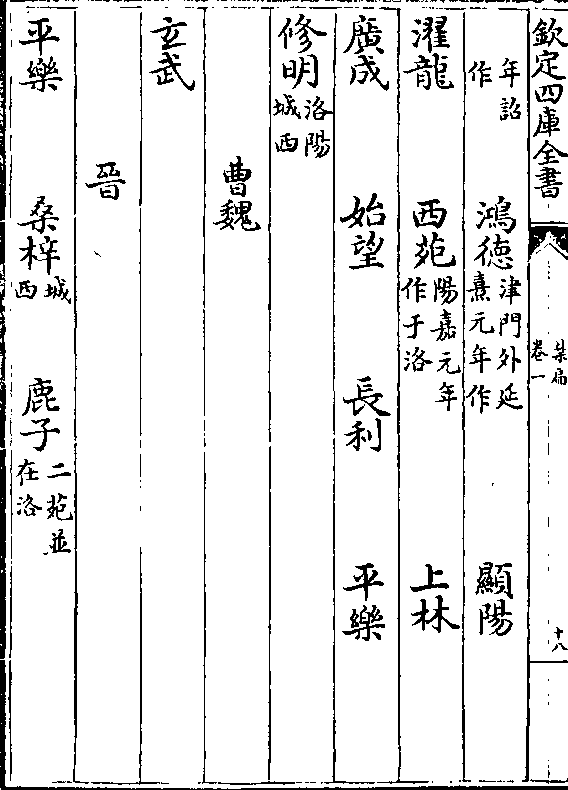 欽定四庫全書
禁扁
卷一
十八
年詔
作
鴻德
津門外延
熹元年作
顯陽
濯龍
西苑
陽嘉元年
作于洛
上林
廣成
始望
長利
平樂
修明
洛陽
城西
曹魏
玄武
晉
平樂
桑梓
城
西
鹿子
二苑並
在洛